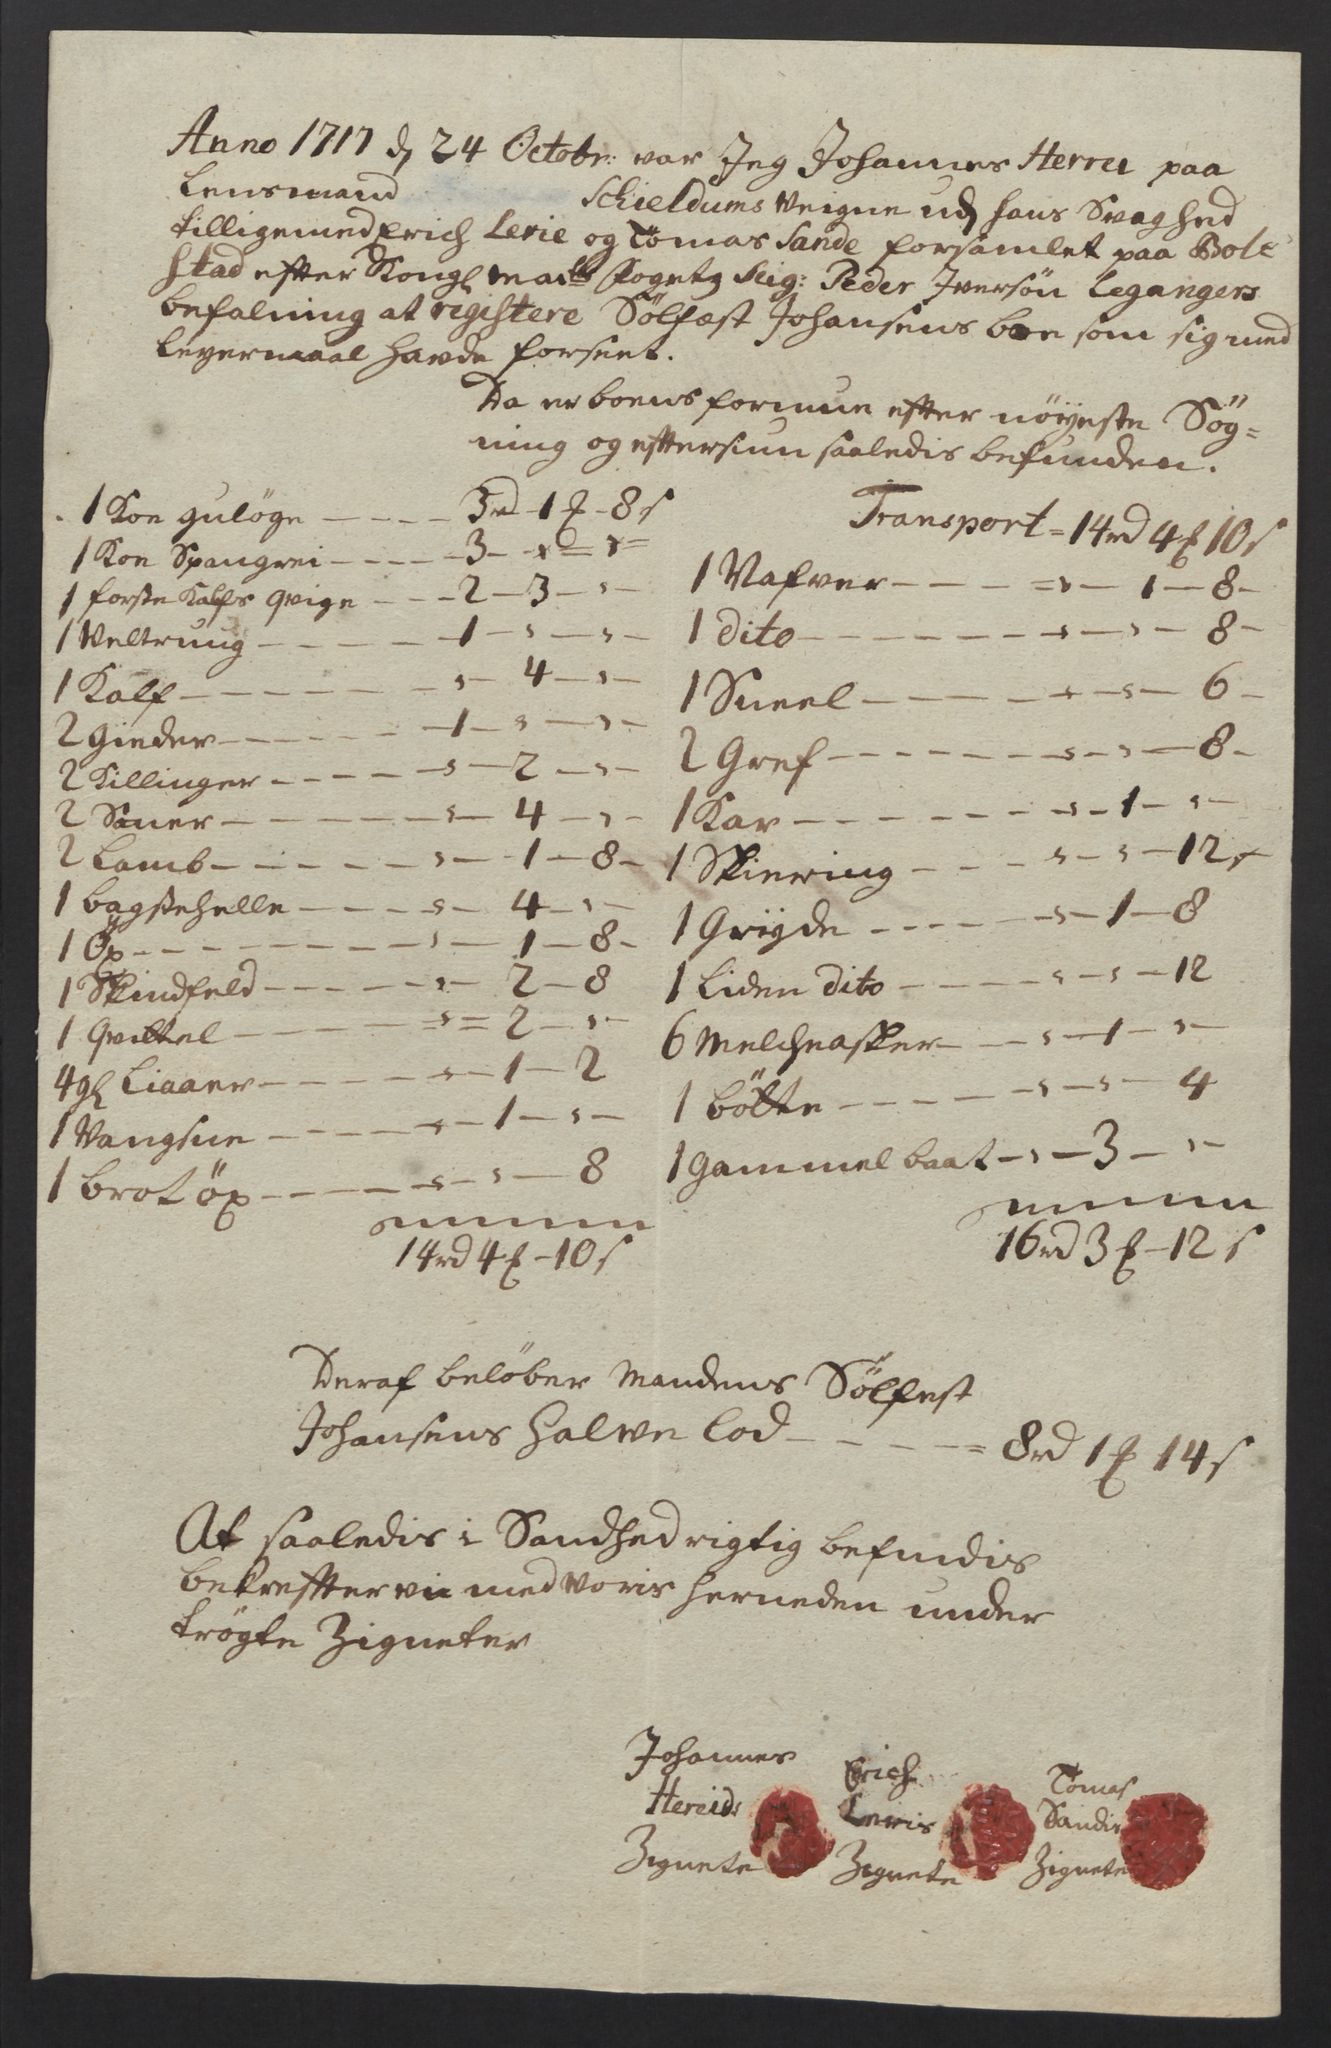 Anno 1717 d 24 Octobr: var Jeg Johannes Herrei paa
Lensmand Schieldums Veigne udj hans Svaghed
tilligemed Erich Lerie og Tomas Sande forsamlet paa Bole
stad efter Kongl Maits fogetz Seig: Peder Jversön Legangers
befalning at registere Sölfæst Johansens boe som sig med
Leyermaal hafde forseet.
Da er boens formue efter nöyeste Sög=
ning og eftersiun saaledis befunden.
1 Koe guløge — 3rd - 1 ƶ - 8 s
1 Koe Spangrei — 3 - „ - „
1 forste Kalfs qvige — 2 - 3 - „
1 Veltrung — 1 - „ - „
1 Kalf — „ - 4 - „
2 Gieder — 1 - „ - „
2 Killinger — „ - 2 - „
2 Sauer — „ - 4 - „
2 Lamb — „ - 1 - 8
1 bagstehelle — „ - 4 - „
1 Öx — „ - 1 - 8
1 Skindfeld — „ - 2 - 8
1 Qvittel — „ - 2 - „
4 gl Liaaer — „ - 1 - 2
1 Vangsne — „ - 1 - „
1 brot öx — „ - „ - 8
14rd 4 ƶ - 10 s
Transport = 14rd 4 ƶ 10 s
1 Nafver — „ - 1 - 8
1 dito — „ - „ - 8
1 Sneel — „ - „ - 6
2 Gref — „ - „ - 8
1 Kar — „ - 1 - „
1 Skiering — „ - „ - 12 s
1 Gryde — „ - 1 - 8
1 Liden dito — „ - „ - 12
6 Melcheasker — „ - 1 - „
1 bötte — „ - „ - 4
1 gammel baat - „ - 3 - „
16rd 3 ƶ - 12 s
Deraf belöber Mandens Sölfest
Johansens halve Lod — = 8rd 1 ƶ 14 s
At saaledis i Sandhed rigtig befindis
bekreffter vi med voris herneden under
trögte Zigneter
Johannes
Hereids
Zignete
Erich
Leris
Zignete
Tomas
Sandis
Zignete